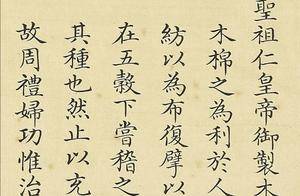 聖祖仁皇帝御製木
木棉之為利於人
紡以為布復擘以
在五榖下嘗稽之
其種也然止以充
故周禮婦功惟治